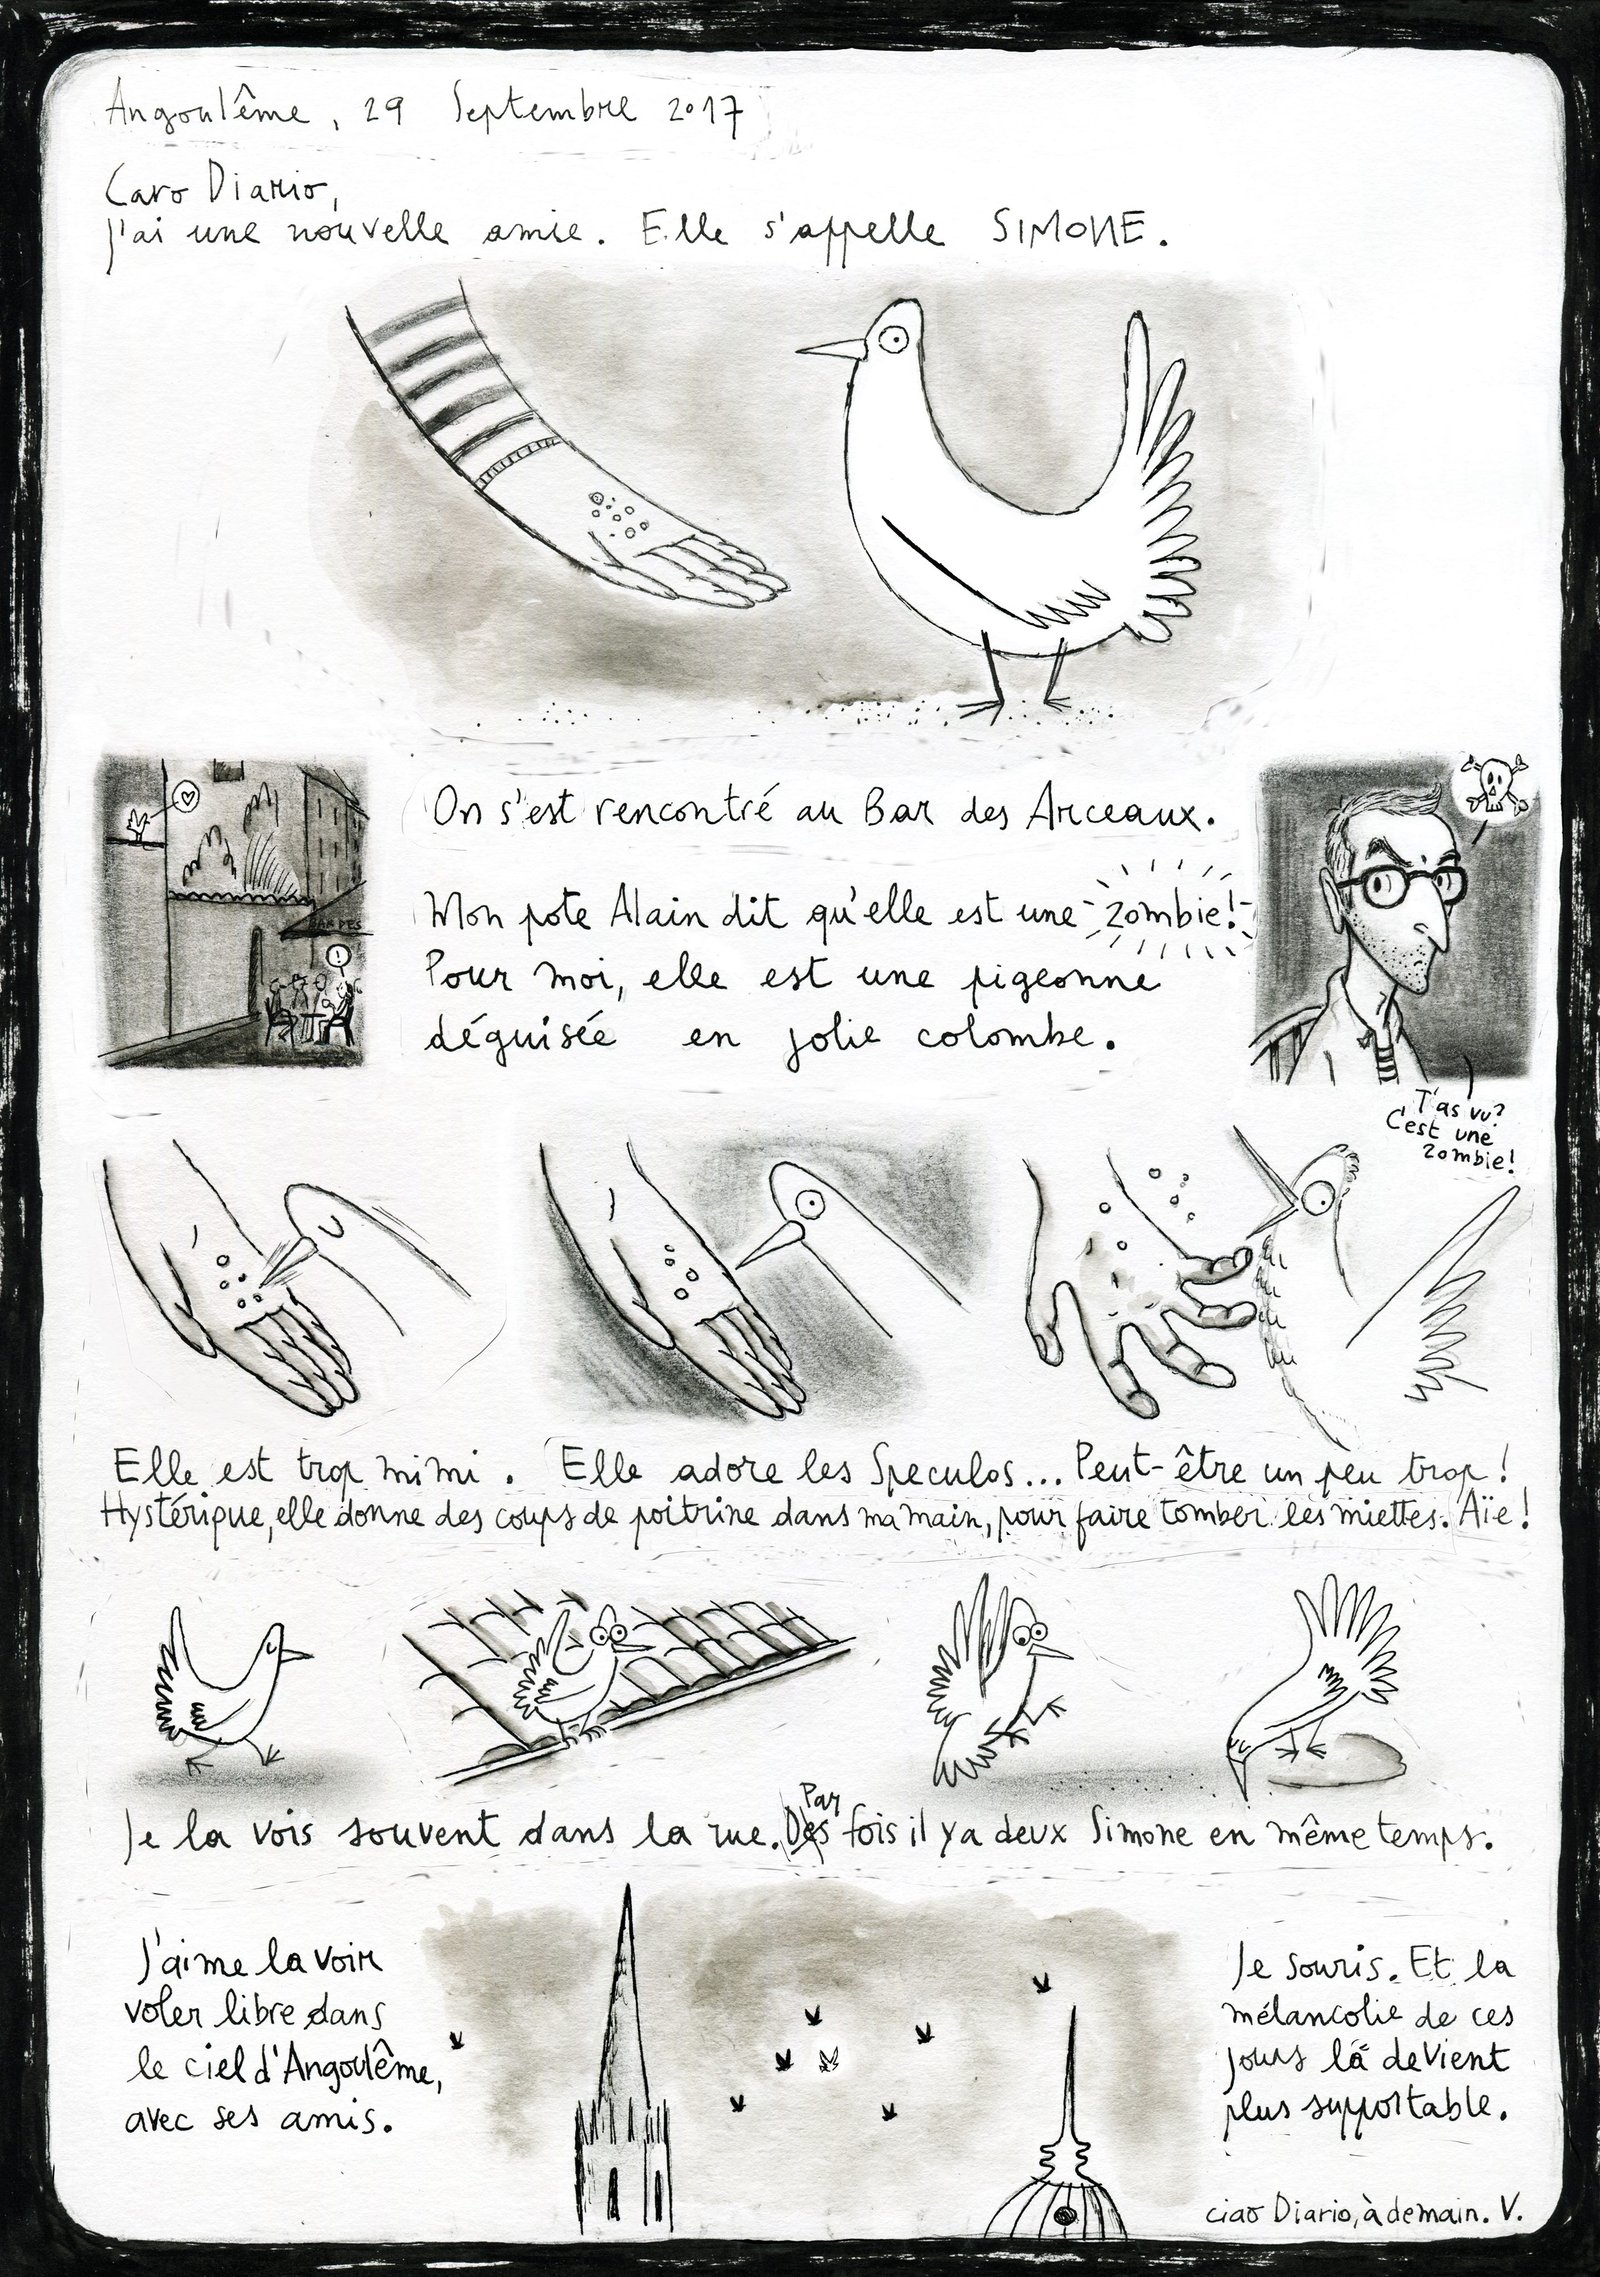 Angoulême, 29 Septembre 2017
Caro Diario,
j'ai une nouvelle amie. Elle s'appelle SIMONE.
On s'est rencontré au Bar des Arceaux.
Mon pote Alain dit qu'elle est une zombie!
Pour moi, elle est une pigeonne
déguisée en jolie colombe.
BAR DES
!
T'as vu?
C'est une
zombie!
Elle est trop mimi. Elle adore les Speculos... Peut-être un peu trop!
Hystérique, elle donne des coups de poitrine dans ma main, pour faire tomber les miettes. Aïe!
Je la vois souvent dans la rue. Des Par fois il y a deux Simone en même temps.
J'aime la voir
voler libre dans
le ciel d'Angoulême,
avec ses amis.
Je souris. Et la
mélancolie de ces
jours là devient
plus supportable.
ciao Diario, à demain. V.